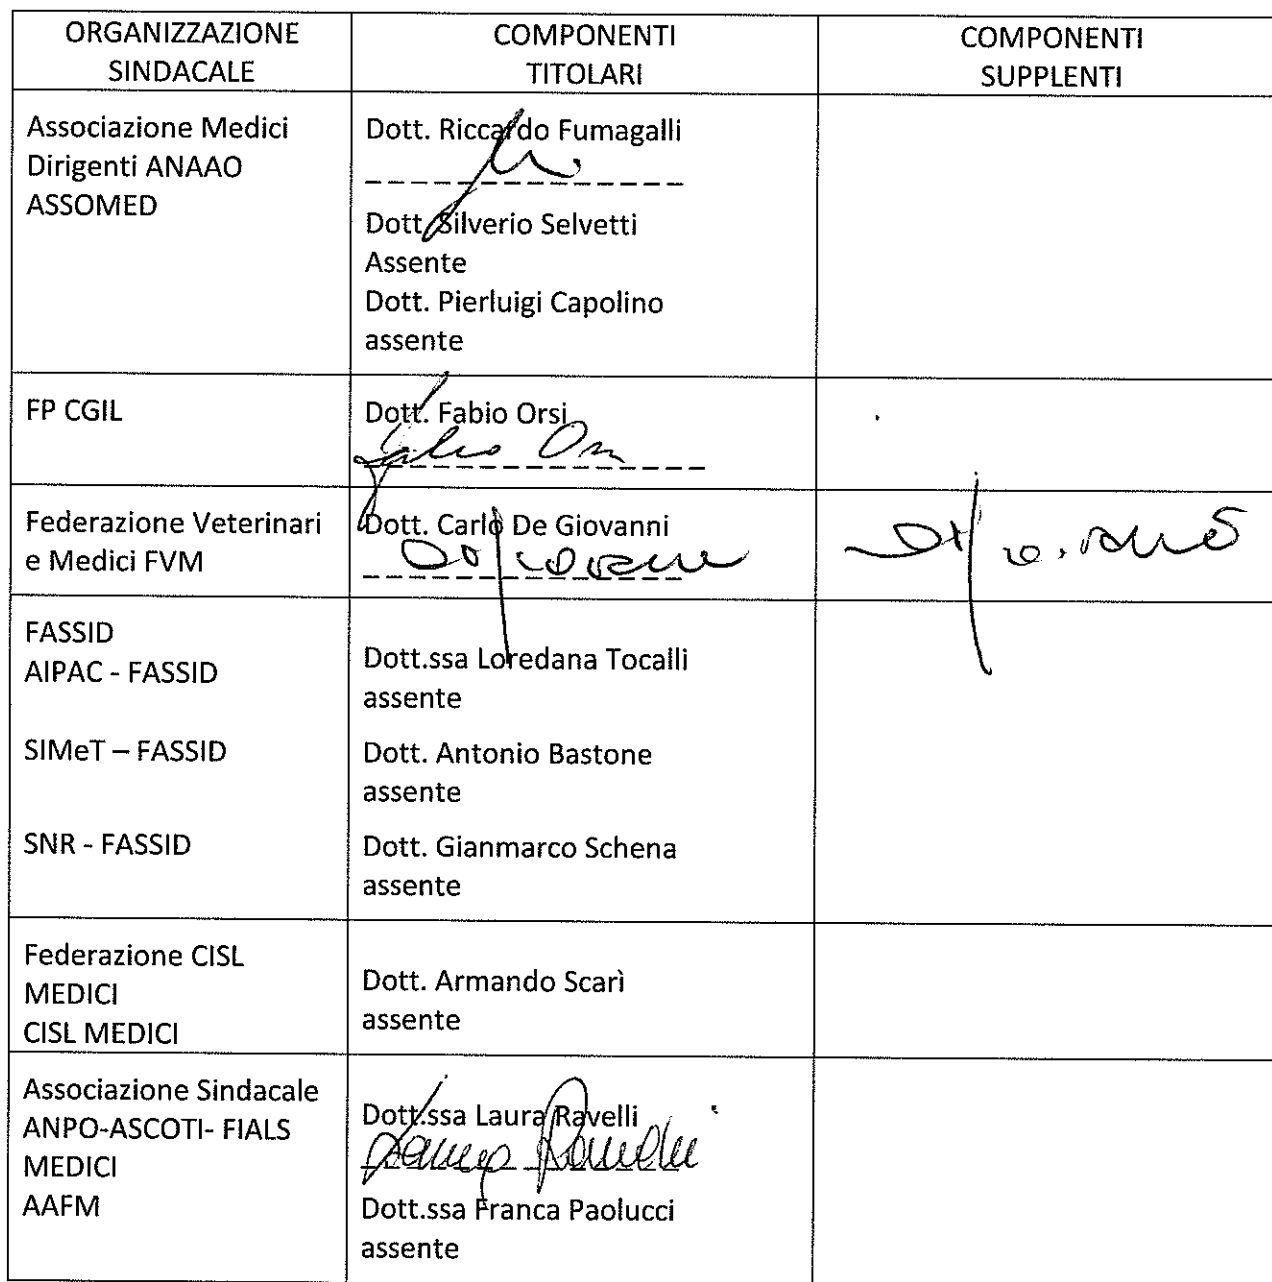 ORGANIZZAZIONE
SINDACALE
COMPONENTI
TITOLARI
COMPONENTI
SUPPLENTI
Associazione Medici
Dirigenti ANAAO
ASSOMED
Dott. Riccardo Fumagalli
Dott. Silverio Selvetti
Assente
Dott. Pierluigi Capolino
assente
FP CGIL
Dott. Fabio Orsi
Federazione Veterinari
e Medici FVM
Dott. Carlo De Giovanni
FASSID
AIPAC - FASSID
Dott.ssa Loredana Tocalli
assente
SIMeT – FASSID
Dott. Antonio Bastone
assente
SNR - FASSID
Dott. Gianmarco Schena
assente
Federazione CISL
MEDICI
CISL MEDICI
Dott. Armando Scarì
assente
Associazione Sindacale
ANPO-ASCOTI- FIALS
MEDICI
AAFM
Dott.ssa Laura Ravelli
Laura Ravelli
Dott.ssa Franca Paolucci
assente